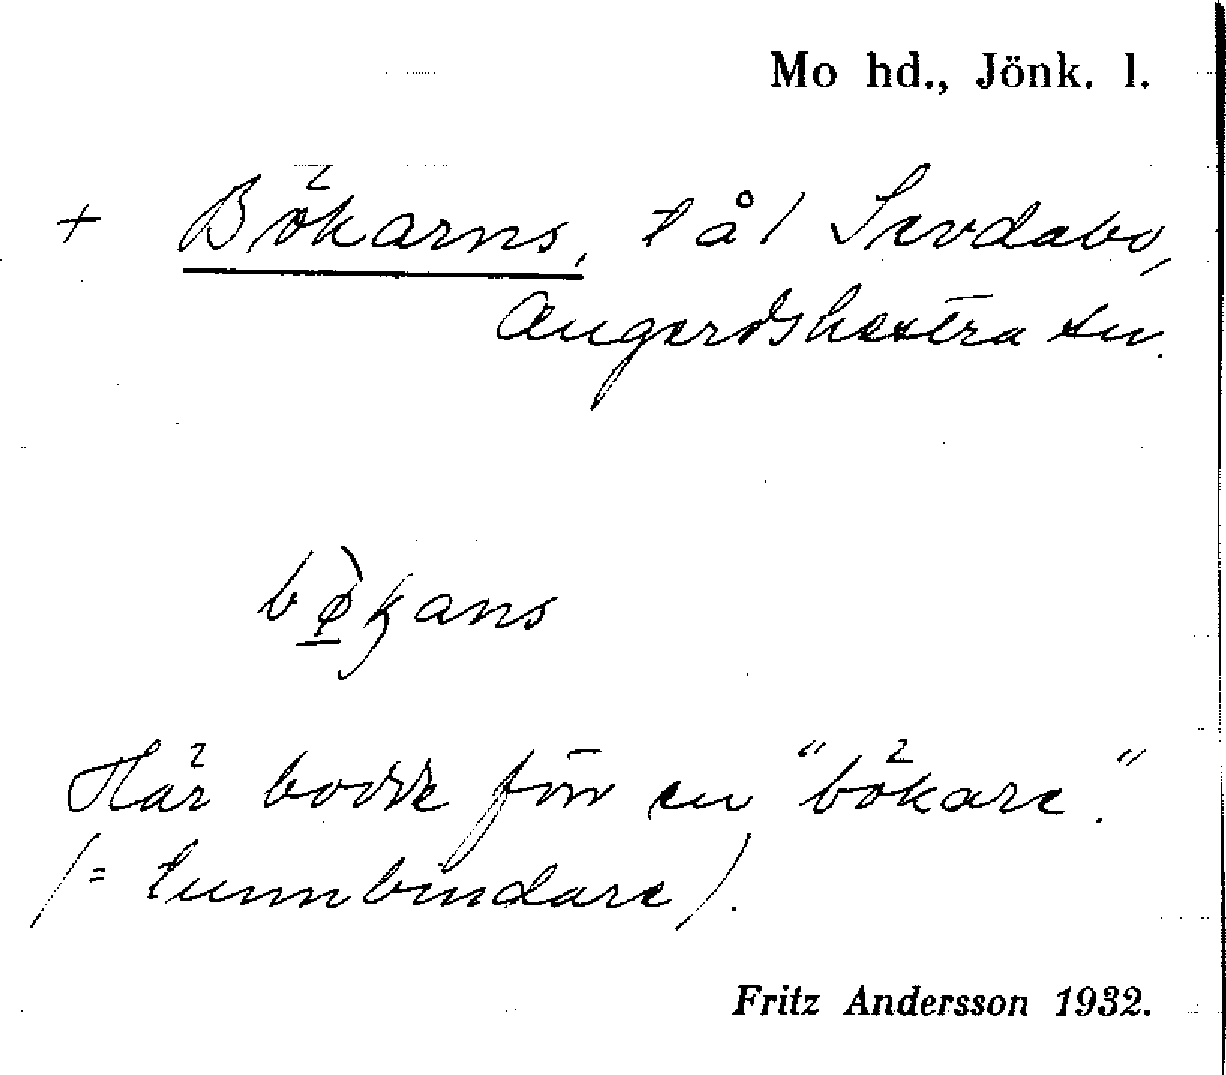 Mo hd., Jönk. l.
+ Bökarns, t å / Sevdabo,
Angerdshestra sn.
bø̀kans
Här bodde förr en "bökare."
/= tunnbindare/.
Fritz Andersson 1932.